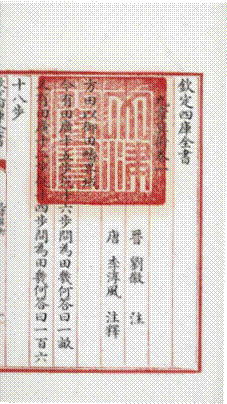 欽定四庫全書
九章算術卷一
晉 劉徽 注
唐 李淳風 注釋
方田以御田疇界域
今有田廣十五步從十六步問為田幾何答曰一畝
又有田廣十二步從十四步問為田幾何答曰一百六
十八步